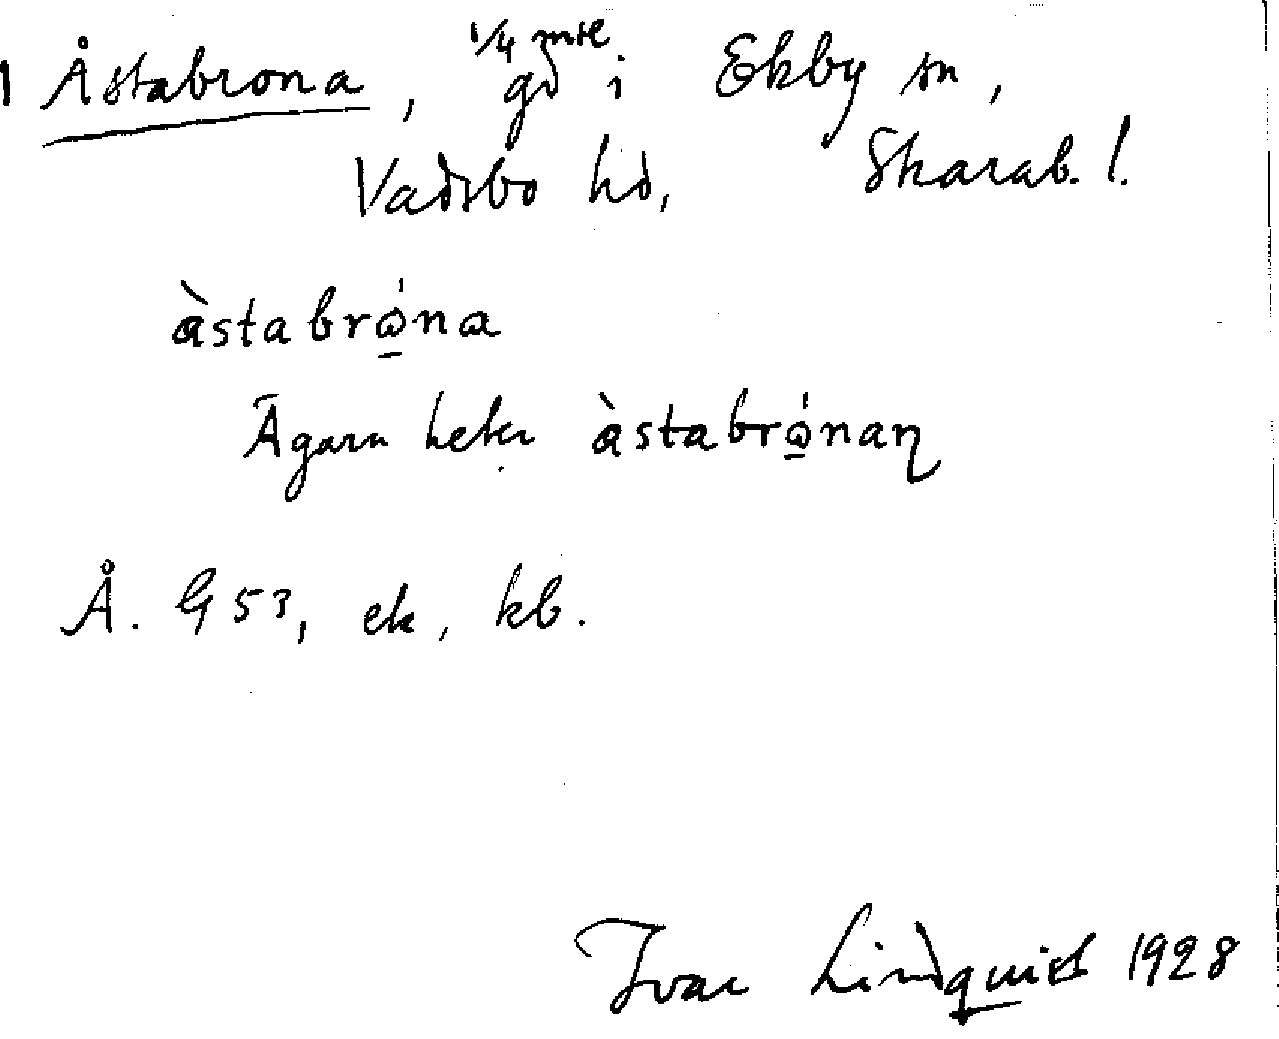 1 Åstabrona, 1/4 mtl gd i Ekby sn,
Vadsbo hd, Skarab. l.
àstabrǫ́na
Ägarn heter àstabrǫ́naɳ
Å. G 53, ek, kb.
Ivar Lindquist 1928